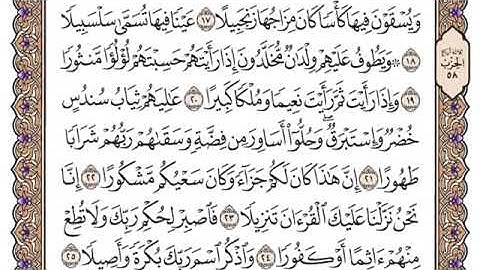 وَيُسۡقَوۡنَ فِيهَا كَأۡسٗا كَانَ مِزَاجُهَا زَنجَبِيلًا ١٧ عَيۡنٗا فِيهَا تُسَمَّىٰ سَلۡسَبِيلٗا
١٨ ۞ وَيَطُوفُ عَلَيۡهِمۡ وِلۡدَٰنٞ مُّخَلَّدُونَ إِذَا رَأَيۡتَهُمۡ حَسِبۡتَهُمۡ لُؤۡلُؤٗا مَّنثُورٗا
١٩ وَإِذَا رَأَيۡتَ ثَمَّ رَأَيۡتَ نَعِيمٗا وَمُلۡكٗا كَبِيرًا ٢٠ عَٰلِيَهُمۡ ثِيَابُ سُندُسٍ
خُضۡرٞ وَإِسۡتَبۡرَقٞۖ وَحُلُّوٓاْ أَسَاوِرَ مِن فِضَّةٖ وَسَقَىٰهُمۡ رَبُّهُمۡ شَرَابٗا
طَهُورًا ٢١ إِنَّ هَٰذَا كَانَ لَكُمۡ جَزَآءٗ وَكَانَ سَعۡيُكُم مَّشۡكُورًا ٢٢ إِنَّا
نَحۡنُ نَزَّلۡنَا عَلَيۡكَ ٱلۡقُرۡءَانَ تَنزِيلٗا ٢٣ فَٱصۡبِرۡ لِحُكۡمِ رَبِّكَ وَلَا تُطِعۡ
مِنۡهُمۡ ءَاثِمًا أَوۡ كَفُورٗا ٢٤ وَٱذۡكُرِ ٱسۡمَ رَبِّكَ بُكۡرَةٗ وَأَصِيلٗا ٢٥
الحزب
٥٨